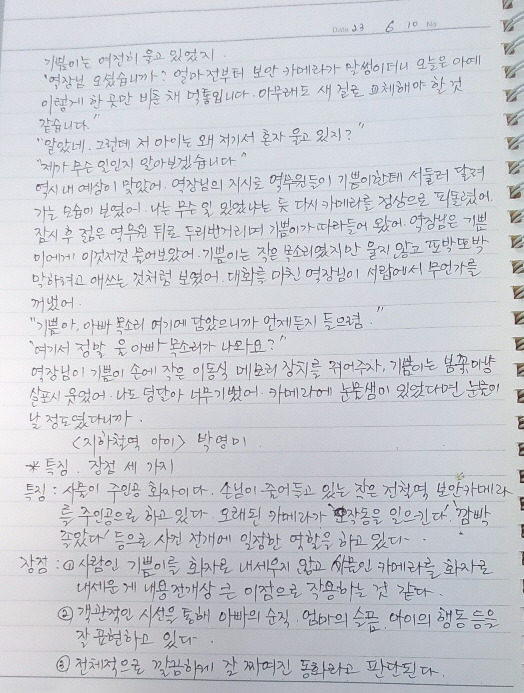 Date 23 6 10 No
기쁨이는 여전히 울고 있었지.
"역장님 오셨습니까? 얼마 전부터 보안 카메라가 말썽이더니 오늘은 아예
이렇게 한 곳만 비춘 채 먹통입니다. 아무래도 새 걸로 교체해야 할 것
같습니다."
"알았네. 그런데 저 아이는 왜 저기서 혼자 울고 있지?"
"제가 무슨 일인지 알아보겠습니다"
역시 내 예상이 맞았어. 역장님의 지시로 역무원들이 기쁨이한테 서둘러 달려
가는 모습이 보였어. 나는 무슨 일 있었냐는 듯 다시 카메라를 정상으로 되돌렸어.
잠시 후 젊은 역무원 뒤로 두리번거리며 기쁨이가 따라들어 왔어. 역장님은 기쁨
이에게 이것저것 물어보았어. 기쁨이는 작은 목소리였지만 울지 않고 또박또박
말하려고 애쓰는 것처럼 보였어. 대화를 마친 역장님이 서랍에서 무언가를
꺼냈어.
"기쁨아, 아빠 목소리 여기에 담았으니까 언제든지 들으렴."
"여기서 정말 울 아빠 목소리가 나와요?"
역장님이 기쁨이 손에 작은 이동식 메모리 장치를 쥐어주자, 기쁨이는 봄꽃마냥
살포시 웃었어. 나도 덩달아 너무 기뻤어. 카메라에 눈물샘이 있었다면 눈물이
날 정도였다니까.
<지하철역 아이> 박영미
* 특징. 장점 세 가지
특징 : 사물이 주인공 화자이다. 손님이 줄어들고 있는 작은 전철역 보안카메라
를 주인공으로 하고 있다. 오래된 카메라가 '오작동을 일으킨다' '깜빡
졸았다' 등으로 사건 전개에 일정한 역할을 하고 있다.
장점 : ① 사람인 기쁨이를 화자로 내세우지 않고 사물인 카메라를 화자로
내세운 게 내용전개상 큰 이점으로 작용하는 것 같다.
② 객관적인 시선을 통해 아빠의 순직, 엄마의 슬픔, 아이의 행동 등을
잘 표현하고 있다.
③ 전체적으로 깔끔하게 잘 짜여진 동화라고 판단된다.